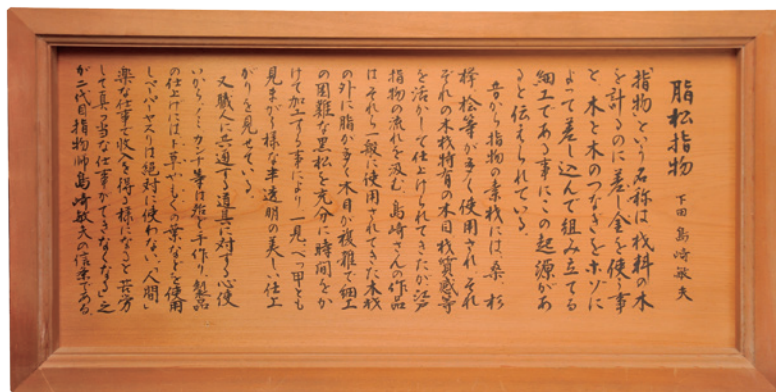 脂松指物
下田 島崎敏夫
「指物」という名称は材料の木
を計るのに差し金を使う事
と、木と木のつなぎをホゾに
よって差し込んで組み立てる
細工である事にこの起源があ
ると伝えられている。
昔から指物の素材には、桑 杉
欅、桧等が多く使用されそれ
ぞれの木材特有の木目材質感等
を活かして仕上げられてきたが江戸
指物の流れを汲む島崎さんの作品
はそれら一般に使用されてきた木材
の外に脂が多く木目が複雑で細工
の困難な黒松を充分に時間をか
けて加工する事により一見、べっ甲とも
見まがう様な半透明の美しい仕上
がりを見せている。
又職人に共通する道具に対する心使
いから、ノミ・カンナ等は殆ど手作り、製品
の仕上げにはト草やむくの葉などを使用
しペーパーヤスリは絶対に使わない。「人間
楽な仕事で収入を得る様になると苦労
して真っ当な仕事ができなくなる」之
が二代目指物師島崎敏夫の信条である。